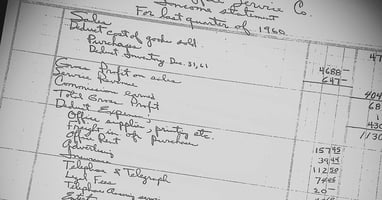 Service Co.
Income statement
For last quarter of 1960
Sales 47
Deduct cost of goods sold
Purchases 4688
Deduct Inventory Dec. 31, 61 647 404
Gross Profit on sales 68
Service Revenue 1
Commission earned 430
Total Gross Profit 1130
Deduct Expense:
Office supplies, printing etc. 157 45
Freight in of purchase 39 44
Office Rent 112 50
Advertising 74 05
Insurance 20 —
Telephone & Telegraph
Legal Fees
Telephone Answering service